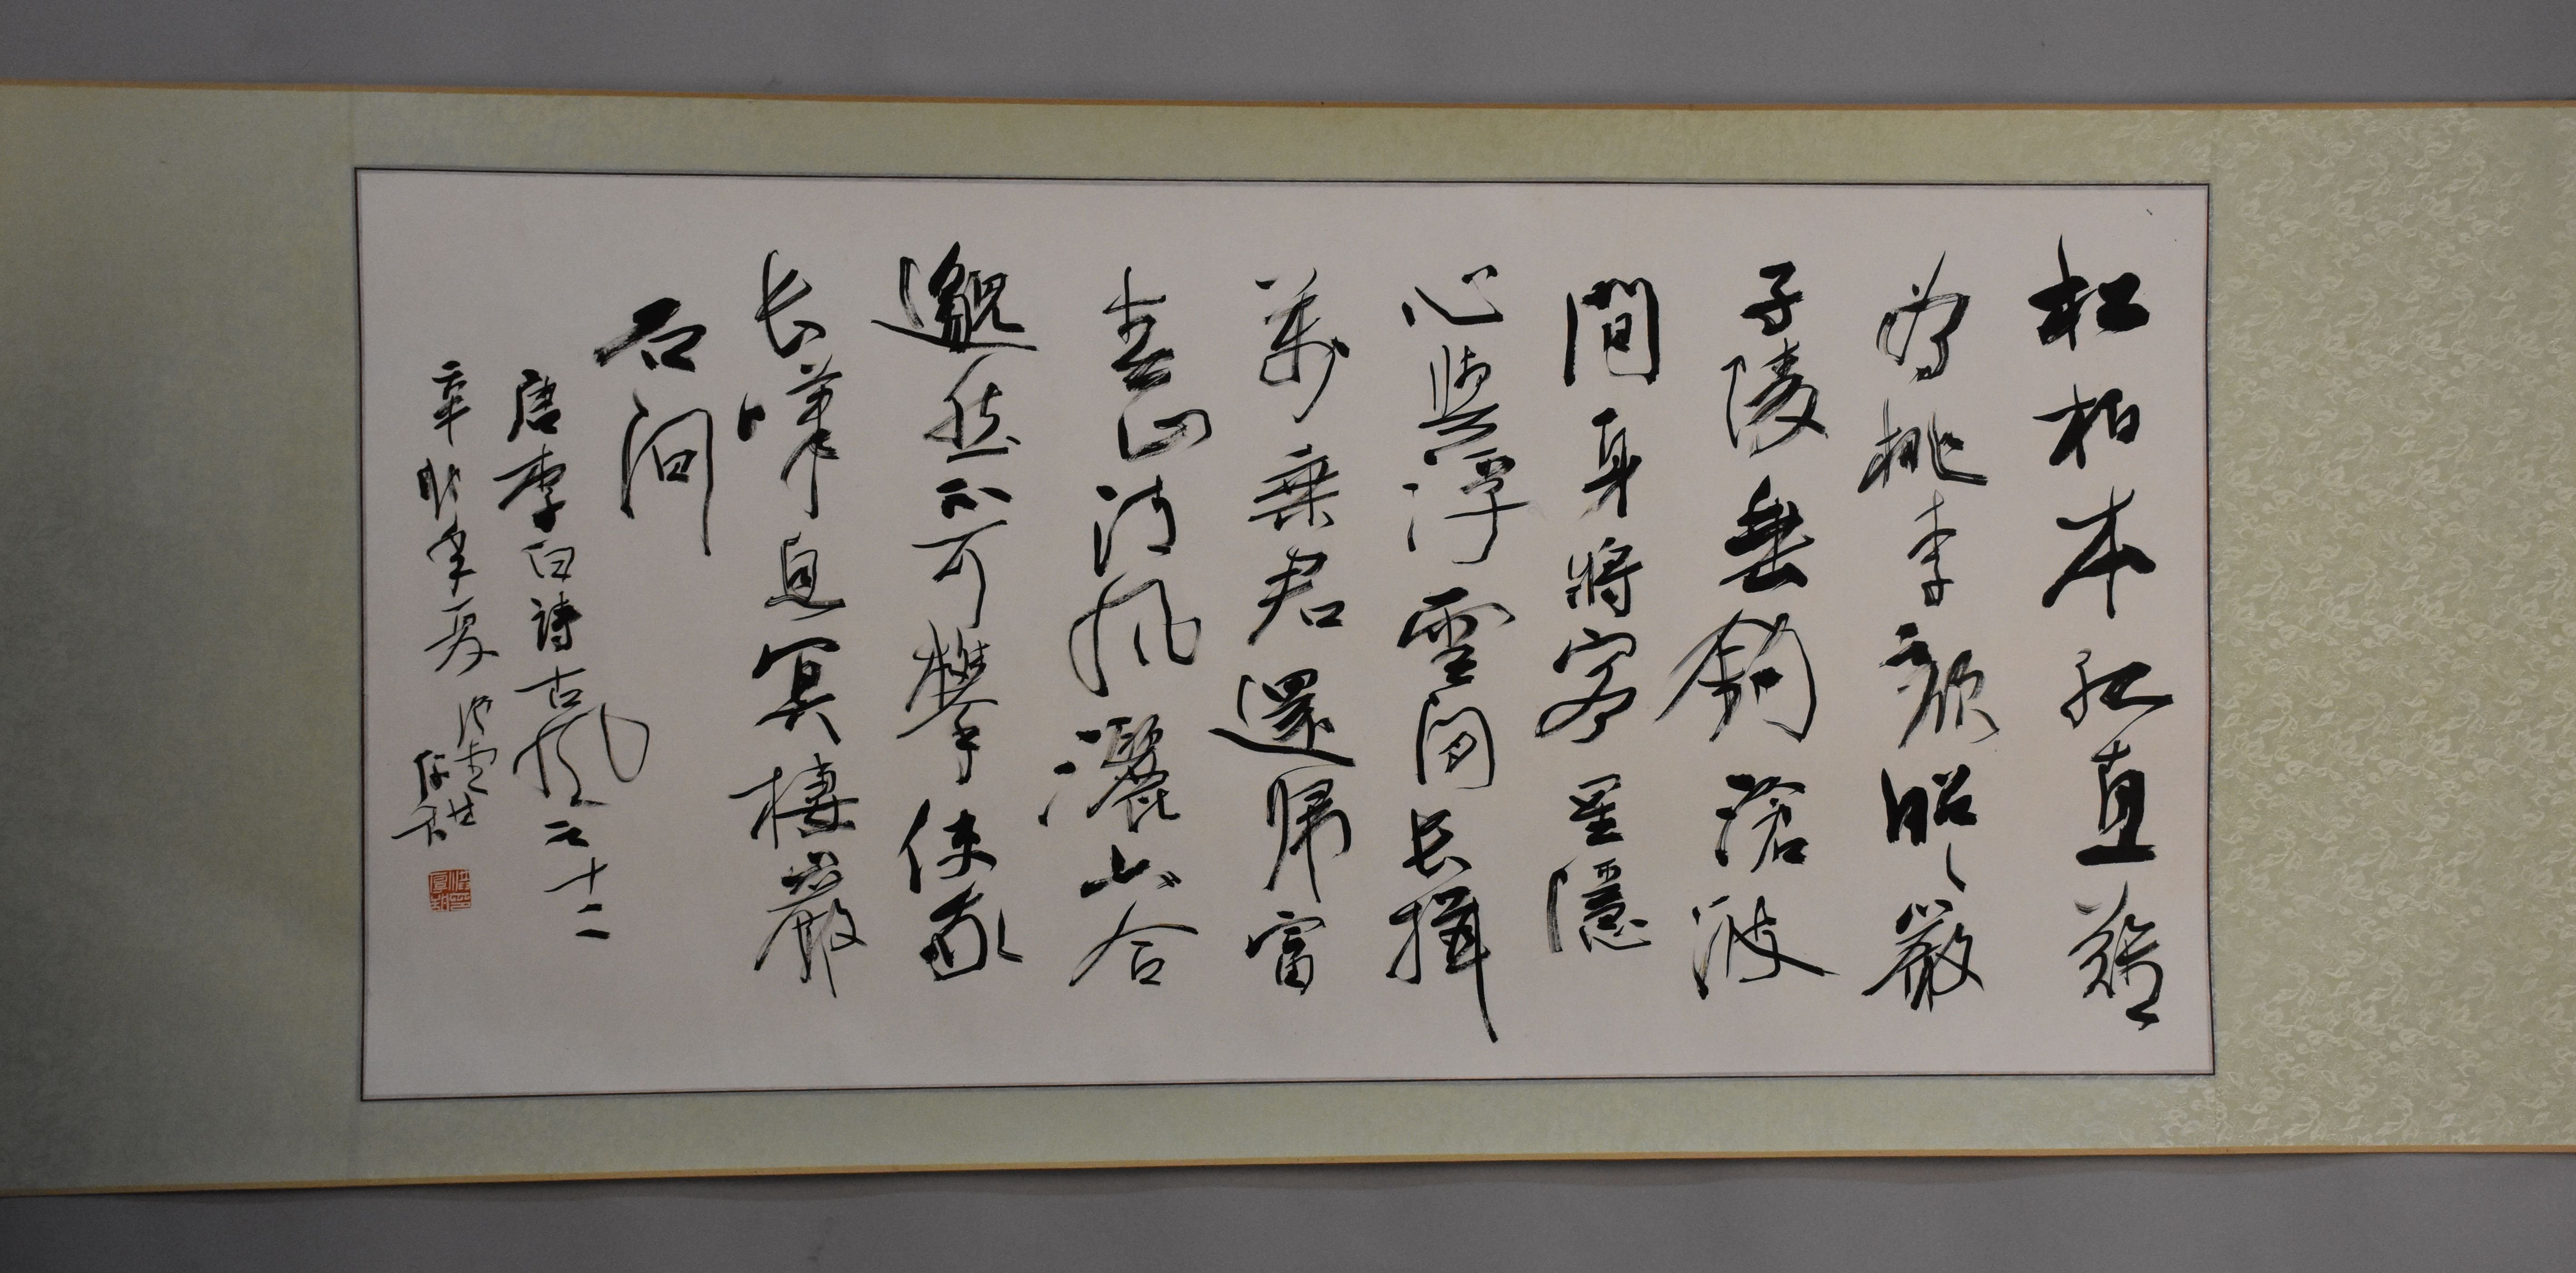 松柏本孤直難
為桃李顏昭〻嚴
子陵垂釣滄波
間身將客星隱
心與浮雲閑長揖
萬乘君還歸富
春山清風灑六合
邈然不可攀使我
長嘆息冥棲巖
石間
唐李白詩古風之十二
辛卯年夏